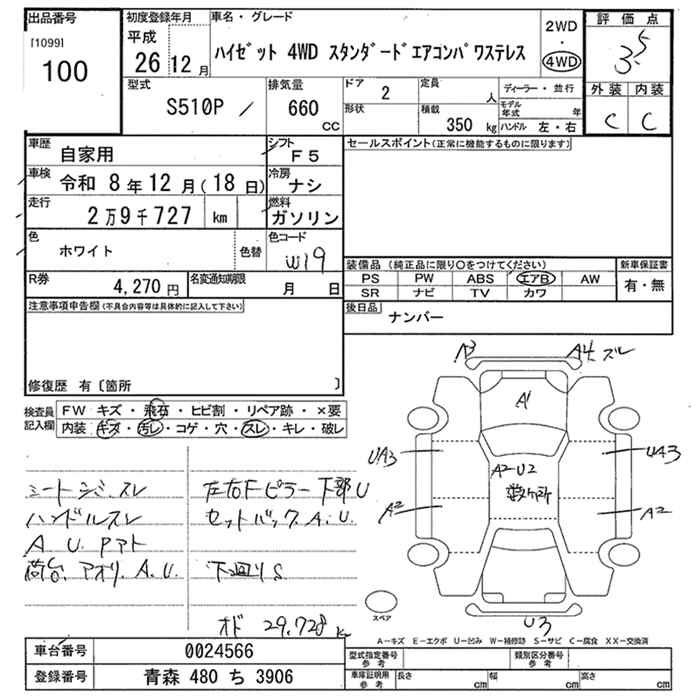 出品番号
[1099]
100
初度登録年月
平成
26 12 月
車名・グレード
ハイゼット 4WD スタンダードエアコンパワステレス
2WD
・
4WD
評価点
3.5
外装 内装
C C
型式
S510P /
排気量
660
cc
ドア 2
定員 人
形状
積載 350 kg
ディーラー・並行
モデル年式 年
ハンドル 左・右
車歴
自家用
シフト
F5
車検
令和 8年 12 月(18 日)
冷房
ナシ
走行
2万9千727 km
燃料
ガソリン
色
ホワイト
色替
色コード
W19
R券
4,270 円
名変通知期限
月 日
セールスポイント(正常に機能するものに限ります)
装備品 (純正品に限り〇をつけてください)
PS PW ABS エアB AW
SR ナビ TV カワ
新車保証書
有・無
後日品
ナンバー
注意事項申告欄(不具合内容等は具体的に記入して下さい)
修復歴 有〔箇所 〕
検査員
記入欄
FW キズ・飛石・ヒビ割・リペア跡・×要
内装・キズ・汚レ・コゲ・穴・スレ・キレ・破レ
シートシミ、スレ
ハンドルスレ
A.U.
荷台.アオリ.A.U.
左右Fピラー下部U
セットバック.A.U.
下回りS
オド 29,728 km
A3
A4 ズレ
A1
UA3
UA3
A2-U2
数ヶ所
A2
A2
U3
スペア
A-キズ E-エクボ U-凹み W-補修跡 S-サビ C-腐食 XX-交換済
車台番号
0024566
登録番号
青森 480 ち 3906
型式指定番号
参考
類別区分番号
参考
車庫証明用
参考
長さ cm
幅 cm
高さ cm